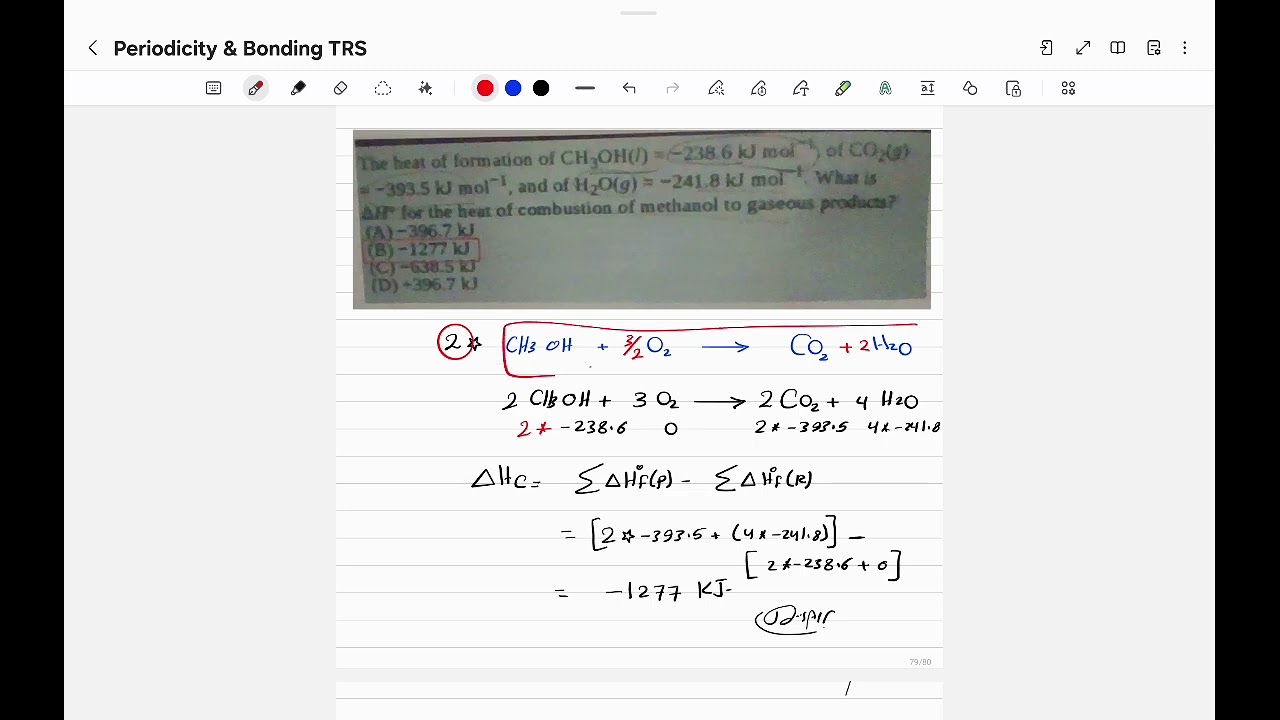 Periodicity & Bonding TRS
The heat of formation of CH₃OH(l) = −238.6 kJ mol⁻¹, of CO₂(g)
= −393.5 kJ mol⁻¹, and of H₂O(g) = −241.8 kJ mol⁻¹. What is
ΔH° for the heat of combustion of methanol to gaseous products?
(A) −396.7 kJ
(B) −1277 kJ
(C) −638.5 kJ
(D) +396.7 kJ
2 * CH3 OH + 3/2 O₂ → CO₂ + 2 H₂O
2 CH3OH + 3 O₂ → 2 CO₂ + 4 H2O
2* -238.6 0 2* -393.5 4* -241.8
ΔHc = Σ ΔH°f(P) - Σ ΔH°f(R)
= [2* -393.5 + (4* -241.8)] -
[2* -238.6 + 0]
= -1277 KJ.
79/80